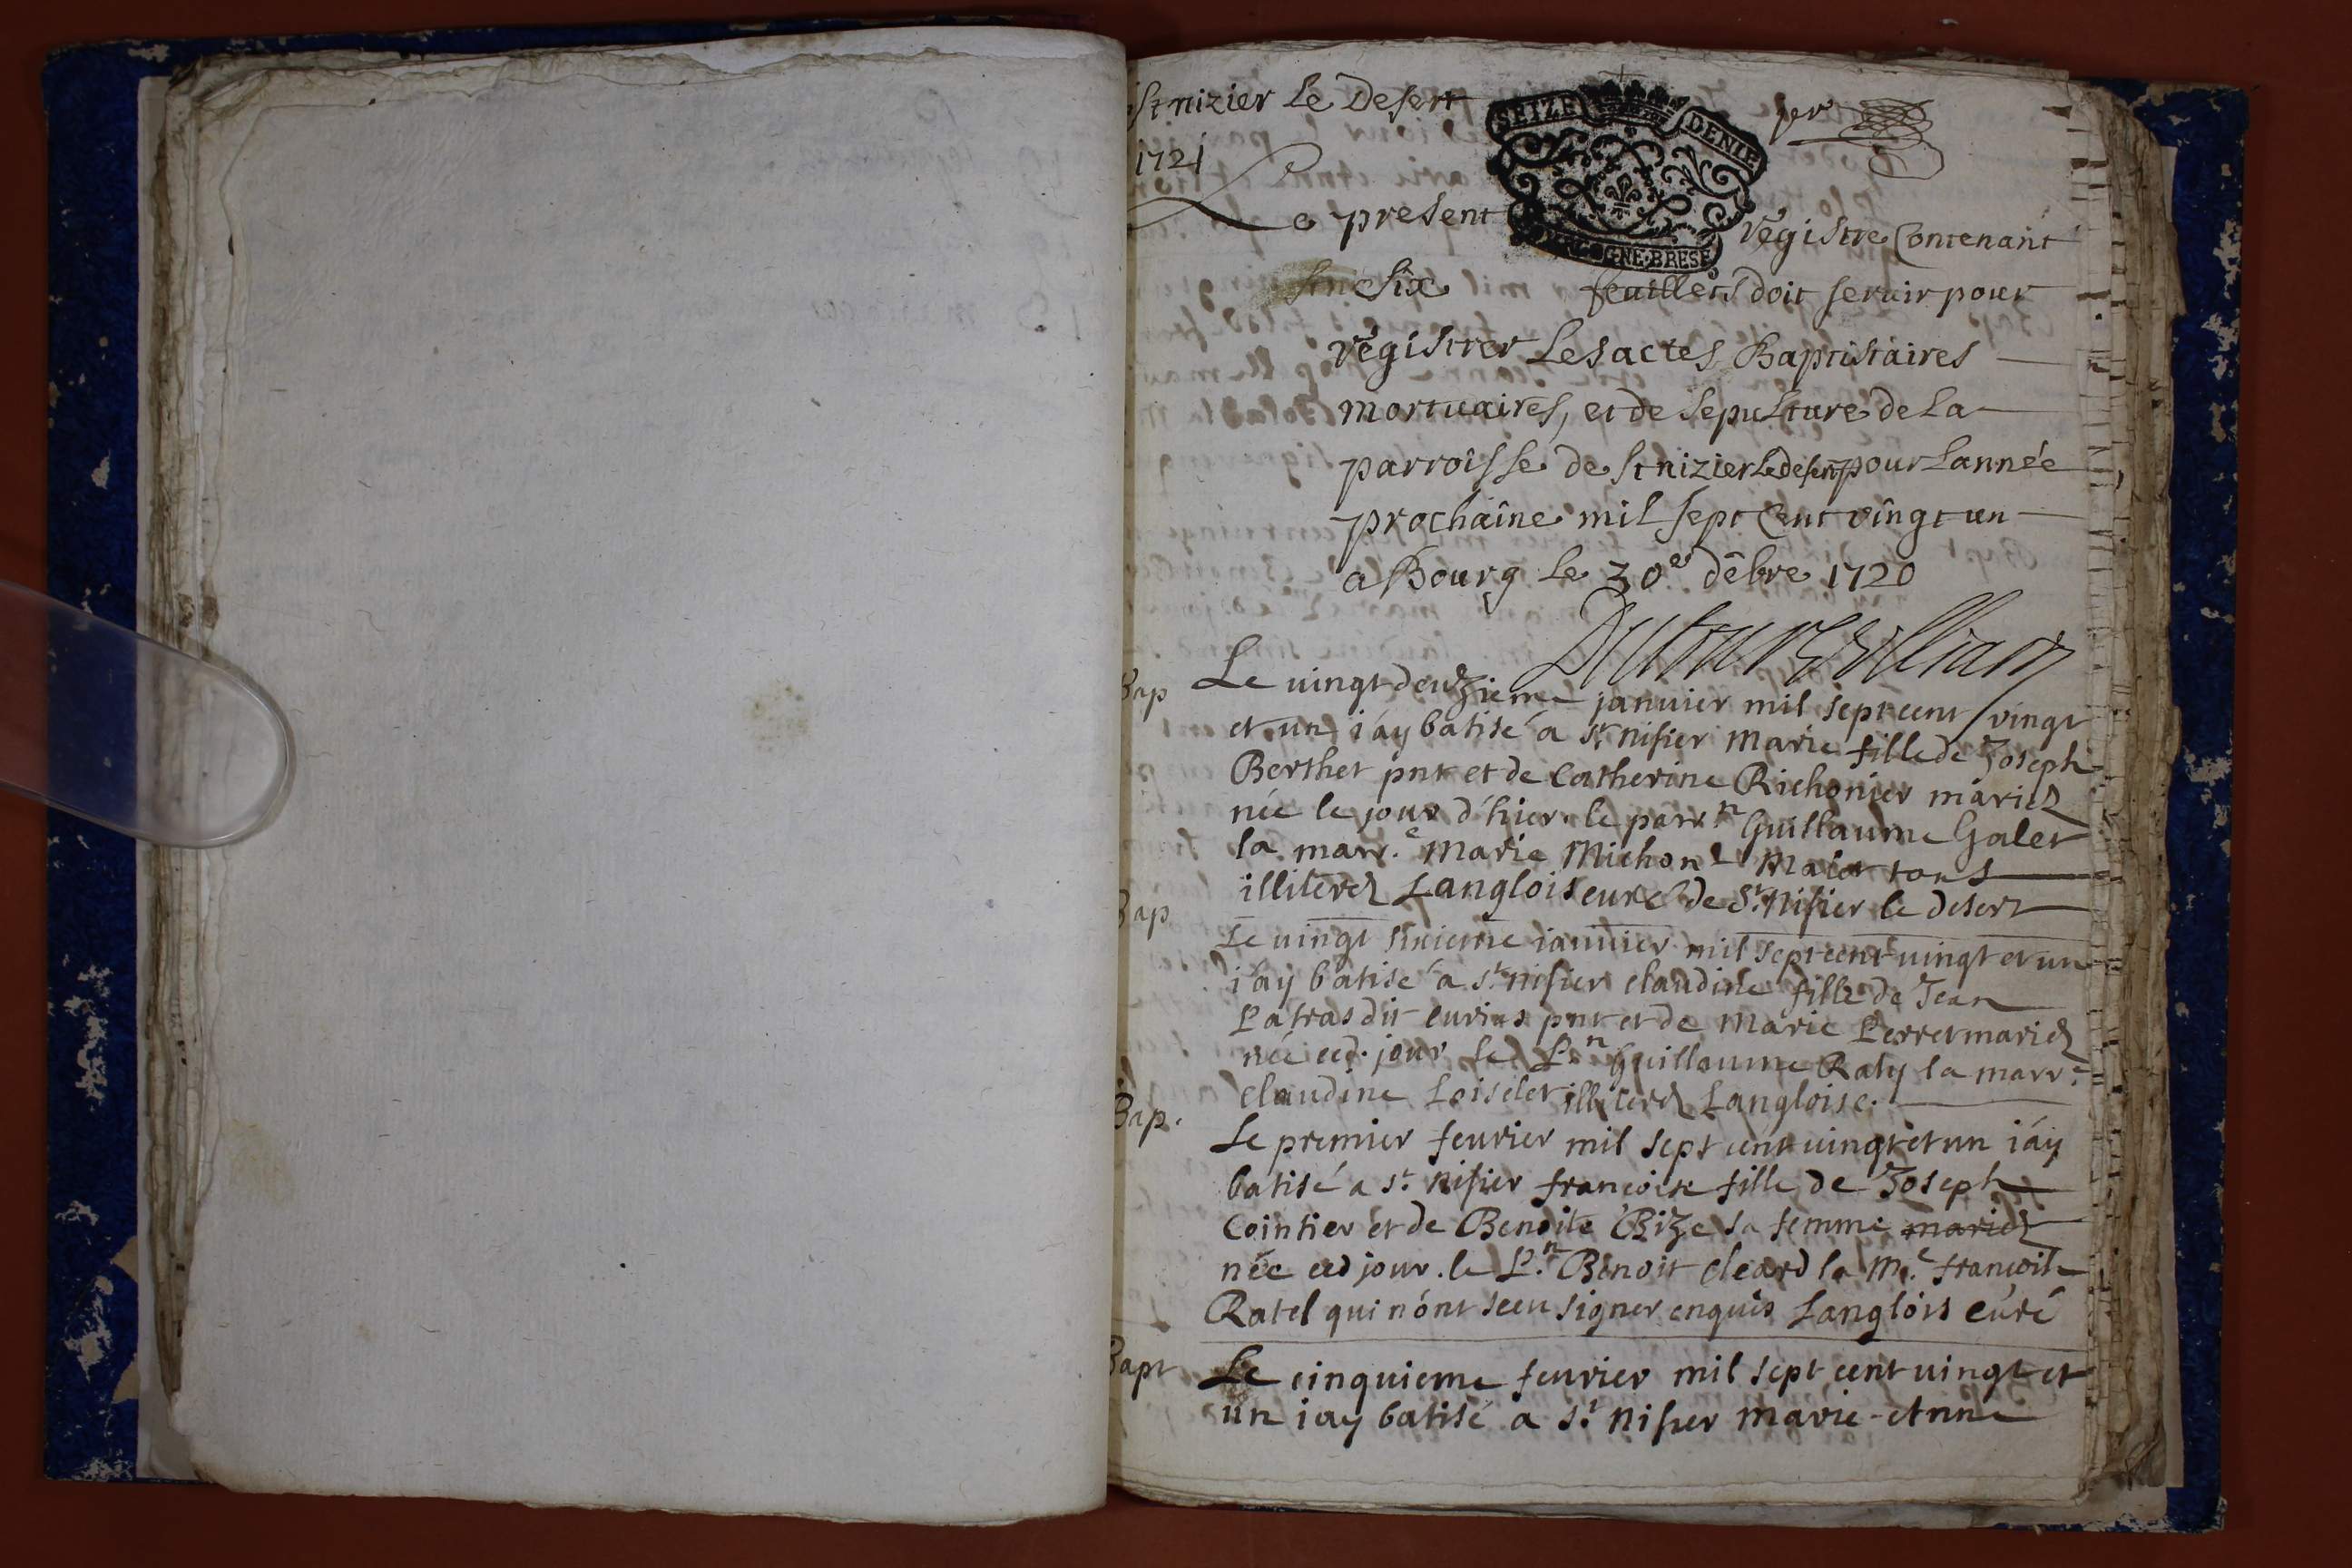 St nizier Le Desert
per
1721
SEIZE DENIE
BOURGOGNE·BRESE
Le present Régistre Contenant
six feuillets doit servir pour
régistrer Les actes Baptistaires
mortuaires, et de sepulture de La
parroisse de St nizier Le desert pour Lannée
prochaine mil sept Cent vingt un
a Bourg le 30e debre 1720
Bap
Le vingt deuzieme janvier mil sept cent vingt
et un i'ay batisé a St nisier marie fille de Joseph
Berthet pnt et de Catherine Richonier mariez
née le jour d'hier. le parr.n Guillaume Galet
la marr.e marie Michon tous
illiterez Langlois curé de St Nisier le desert
Bap
Le vingt sixieme ianvier mil sept cent vingt et un
i'ay batisé a St nisier claudine fille de Jean
Patras dit pnt et de Marie Perret mariez
née ced. jour le P.n Guillaume Raty la marr.e
claudine Loiselet illiterez Langlois c.
Bap.
Le premier feurier mil sept cent uingt et un i'ay
batisé a St Nisier francoise fille de Joseph
Cointier et de Benoite Bize sa femme mariez
née ced jour. le P.n Benoit cleard la M.e francoise
Ratel qui n'ont sceu signer enquis Langlois curé
Bapt
Le cinquieme feurier mil sept cent uingt et
un i'ay batisé a St Nisier marie-Anne